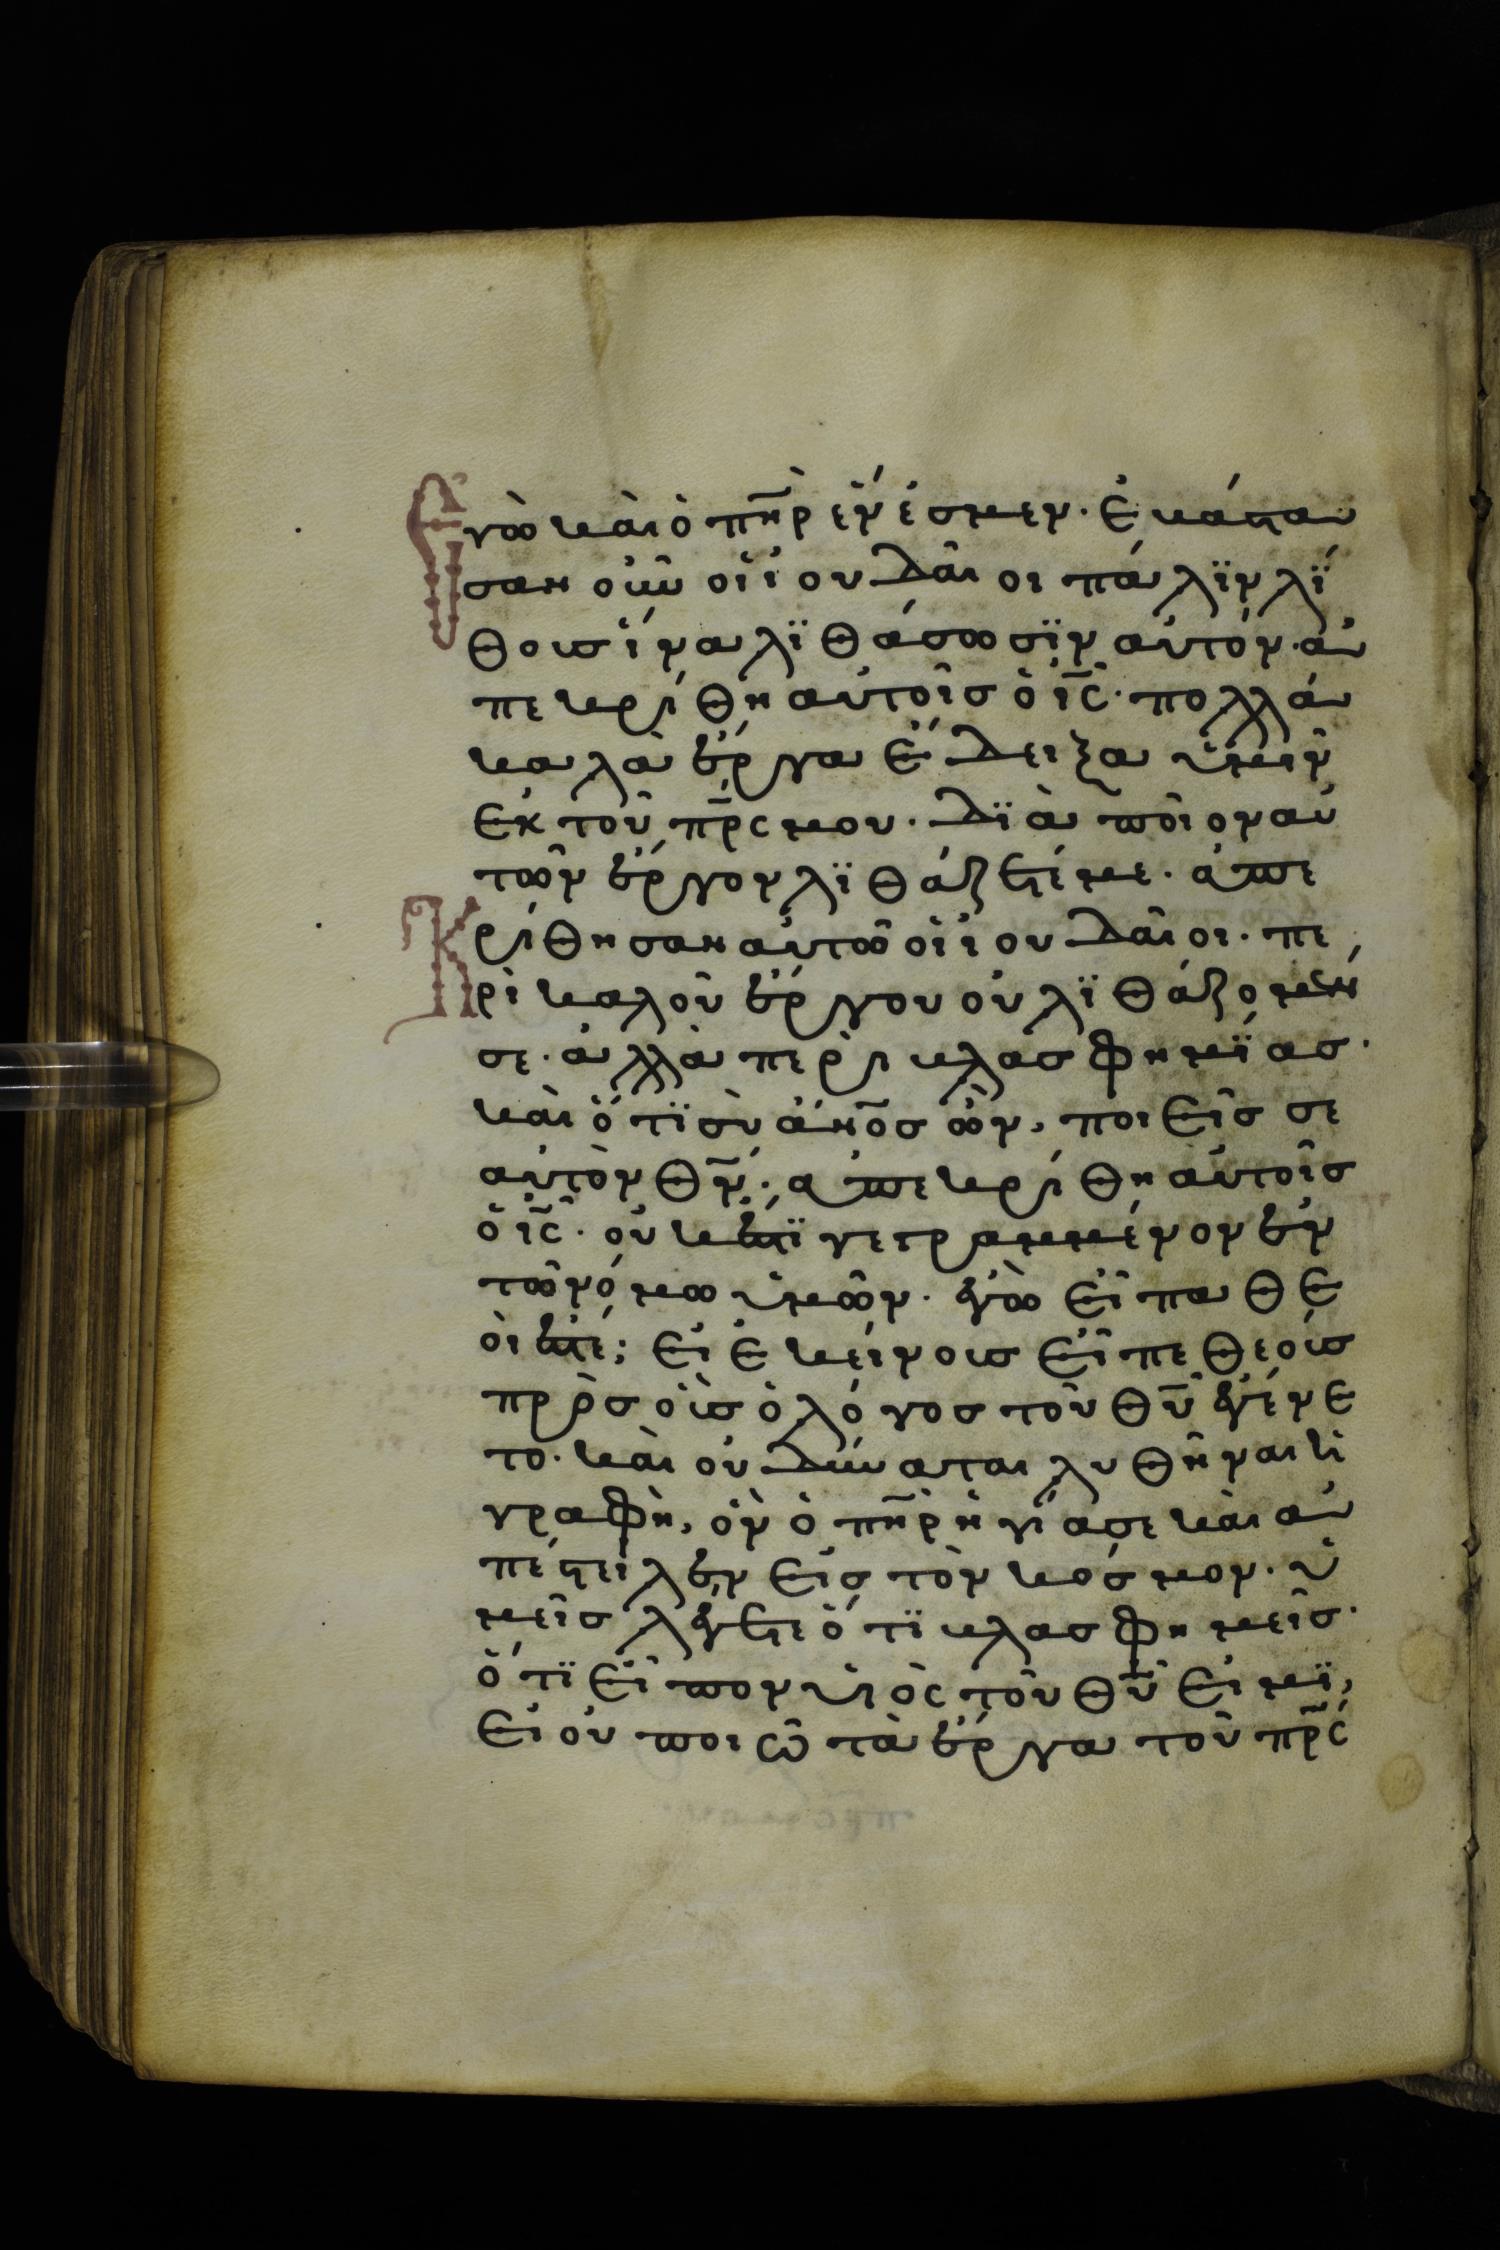 Ἐγὼ καὶ ὁ πη̅ρ ἕν ἐσμεν· ἐκάστα
σαν οὖν οἱ ἰουδαῖοι πάλϊν λΐ
θους ἵνα λϊθάσωσϊν αὐτόν· ἀ
πεκρίθη αὐτοῖς ὁ ι̅ς· πολλὰ
καλὰ ἔργα ἔδειξα ὑμῖν
ἐκ τοῦ πρ̅ς μου· δϊὰ ποῖον αὐ
τῶν ἔργον λϊθάζετέ με· ἀπε
Κρίθησαν αὐτῶ οἱ ἰουδαῖοι· πε
ρὶ καλοῦ ἔργου οὐ λϊθάζομέν
σε· ἀλλὰ περὶ βλασφημΐας·
καὶ ὅτϊ σὺ ἄνο̅ς ὢν, ποιεῖς σε
αὐτὸν θν̅· ἀπεκρίθη αὐτοῖς
ὁ ι̅ς· οὐκ ἔστϊ γεγραμμένον ἐν
τῶ νόμω ὑμῶν· ἐγὼ εἶπα θε
οί ἐστε; εἰ ἐκείνους εἶπε θεοὺς
πρὸς οὓς ὁ λόγος τοῦ θυ̅ ἐγένε
το· καὶ οὐ δύναται λυθῆναι ἡ
γραφὴ, ὃν ὁ πη̅ρ ἡγίασε καὶ ἀ
πέστειλεν εἰς τὸν κόσμον· ὑ
μεῖς λέγετε ὅτϊ βλασφημεῖς·
ὅτϊ εἶπον υἱὸς τοῦ θυ̅ εἰμϊ,
εἰ οὐ ποιῶ τὰ ἔργα τοῦ πρ̅ς